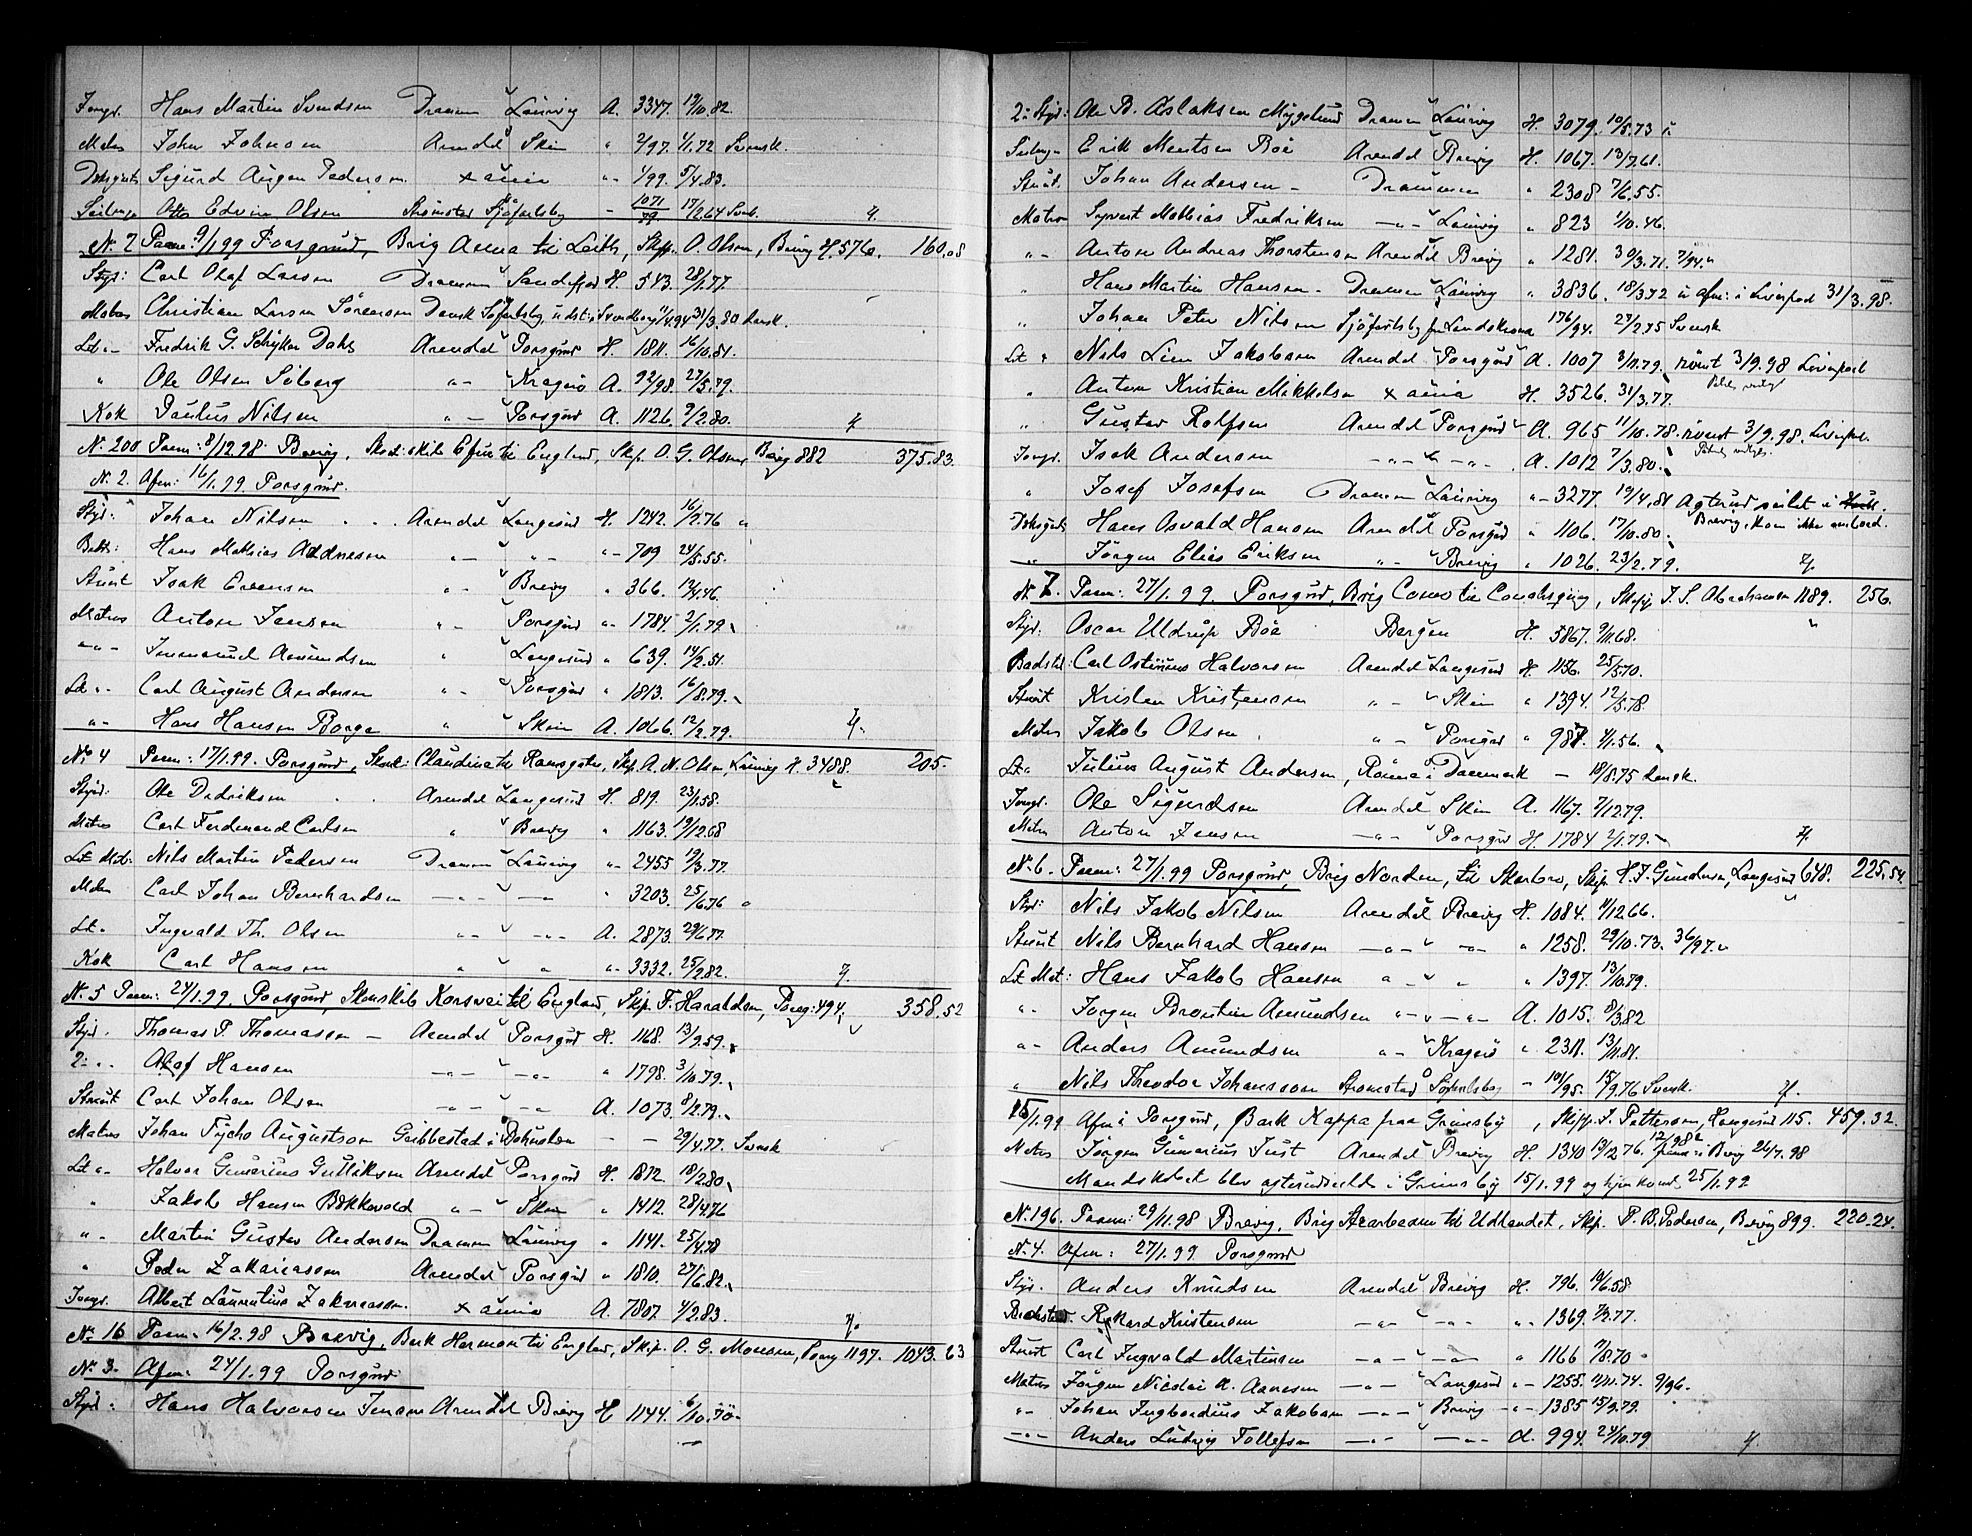 Jungd. Hans Martin Svendsen Drammen Laurvig A. 3347. 19/10.82.
Matros John Johnsen Arendal Skien " 2/97. 4/1.72 Svensk.
Dæksgut Sigurd August Pedersen. x amia "- 1/99. 5/4.83.
Seilm. Otto Edvin Olsen Strømstad Sjöfartsby - 1071/79. 17/2.64 Svensk. 7.
N. 2 Paam: 9/1.99 Porsgrund, Brig Anna til Leith, Skp. O. Olsen, Brevig H. 576. 160.08
Styr: Carl Olaf Larsen Drammen Sandefjord H. 543. 28/1.77.
Matros Christian Larsen Sörensen Dansk Söfartsby udst. i Svendborg 1/4.94 31/3.80 Dansk.
Let "- Fredrik G. Schytter Dahl Arendal Porsgrund H. 1811. 16/10.81.
" Ole Olsen Siberg "- Kragerö A. 92/98. 27/5.79.
Kok Paulus Nilsen "- Porsgrund A. 1126. 9/2.80. 7
N. 200 Paam: 8/12.98 Brevig, Skot: skib Efeu til England, Skp. O. G. Olsen, Brevig 882 375.83.
N. 2. Afm: 16/1.99 Porsgrund.
Styr: Johan Nilsen Arendal Langesund H. 1242. 16/2.76 "
Bådts: Hans Mathias Andresen "- "- "- 709 24/5.55.
Stuert Isak Evensen "- Brevig " 366. 14/4.46.
Matros Anton Jensen "- Porsgrund "- 1784. 2/1.79.
"- Immanuel Amundsen " Langesund " 639. 14/2.51.
Let "- Carl August Andersen "- Porsgrund " 1813. 16/8.79.
"- Hans Hansen Borge " Skien A. 1066. 12/2.79. 7.
N. 4 Paam: 17/1.99. Porsgrund, Skont: Claudina til Ramsgate, Skp. A. N. Olsen, Laurvig H. 3488. 205.
Styrd: Ole Dedriksen Arendal Langesund H. 819. 23/1.58.
Matros Carl Ferdinand Carlsen " Brevig " 1163. 19/12.68
Let Mat. Nils Martin Pedersen Drammen Laurvig "- 2455 19/3.77.
Matros Carl Johan Bernhardsen -"- -"- 3203. 25/6.76
Let " Ingvald Th. Olsen "- -"- A. 2873. 29/6.77.
Kok Carl Hansen " " "- 3332. 25/9.82. 7.
N. 5 Paam: 24/1.99. Porsgrund, Skonskib Korsvei til England, Skp. F. Haraldsen, Porsg: 494. 358.52
Styrd. Thomas P. Thomassen - Arendal Porsgrund H. 1168. 13/9.59.
2: ". Olaf Hansen -"- -"- " 1798. 3/10.79.
Stuert Carl Johan Olsen -"- -"- A. 1073. 8/2.79.
Matros Johan Tycho Augustson Grebbestad i Bohuslän - - 29/4.77. Svensk
Let "- Halvor Gunerius Gulliksen Arendal Porsgrund H. 1812. 18/2.80.
" Jakob Hansen Bökkevold "- Skien " 1412. 28/4.76
"- Martin Gustav Andersen Drammen Laurvig " 1141. 25/4.78
" Peder Zakariassen Arendal Porsgrund " 1810. 27/6.82.
Jungd. Albert Laurentius Zakariassen. x amia A. 7807. 4/2.83. 7.
N. 16 Paam: 16/2.98 Brevig, Bark Hermon til England, Skip. O. G. Monsen, Porsg 1197. 1043.63
N. 3. Afm: 24/1.99 Porsgrund
Styrd: Hans Halvorsen Jensen Arendal Brevig H. 1144. 6/10.70.
2: Styr: Ole B. Aslaksen Myggelund Drammen Laurvig H. 3079. 10/5.73
Seilm. Erik Mentsen Böe Arendal Brevig H. 1067. 13/7.61.
Stuet. Johan Andersen - Drammen " 2308 7/6.55.
Matros Syvert Mathias Fredriksen -"- Laurvig " 823 1/10.46.
"- Anton Andreas Thorstensen Arendal Brevig " 1281. 30/3.71. 7/94."
" Hans Martin Hansen - Drammen Laurvig " 3836. 18/3.72 afm: i Liverpool 31/3.98.
" Johan Peter Nilsen Sjöfartsby fra Landskrona 176/94. 27/2.75 Svensk
Let " Nils Lien Jakobsen Arendal Porsgrund A. 1007 3/11.79. römt 3/9.98 Liverpool
" Anton Kristian Mikkelsen x amia H. 3526. 31/3.77.
" Gustav Rolfsen Arendal Porsgrund A. 965 11/10.78. römt 3/9.98. Liverpool.
Jungd. Isak Andersen -"- -"- A. 1012 7/3.80.
" Josef Josefsen Drammen Laurvig "- 3277. 19/4.81 Agterud seilet i
Dæksgut Hans Osvald Hansen Arendal Porsgrund " 1106. 17/10.80. Brevig, kom ikke ombord.
" Jörgen Elias Eriksen "- Brevig " 1026. 23/2.79. 7.
N. 7. Paam: 27/1.99. Porsgrund, Brig Como til Conahsquay, Skip. J. S. Abrahamsen 1189. 256.
Styr. Oscar Uldrup Böe Bergen H. 5867. 9/11.68.
Baadsts: Carl Ostinius Halvorsen Arendal Langesund H. 1156. 25/5.70.
Stuert Kristen Kristensen "- Skien " 1394. 12/5.78.
Matros Jakob Olsen "- Porsgrund " 987. 4/1.56.
Let " Julius August Andersen, Rönne i Danmark - 18/8.75 Dansk.
Jungd. Ole Sigurdsen Arendal Skien A. 1167. 7/12.79.
Matros Anton Jensen -"- Porsgrund H. 1784 2/1.79. 7.
N. 6. Paam: 27/1.99 Porsgrund, Brig Norden, til Skarbro, Skip. H. J. Gundersen, Langesund 648. 225.54.
Styr: Nils Jakob Nilsen Arendal Brevig H. 1084. 11/12.66.
Stuert Nils Bernhard Hansen -"- -"- " 1258. 29/10.73. 36/97."
Let Mat: Hans Jakob Hansen " " " 1397. 13/10.79.
"- Jörgen Brontin Amundsen "- -"- A. 1015. 8/3.82
"- Anders Amundsen "- Kragerö " 2311. 13/11.81.
" Nils Theodor Johansson Strømstad Söfartsby - 101/95. 15/9.76 Svensk. 7.
25/1.99 Afm i Porsgrund, Bark Kappa fra Grimsby, Skip. J. Pettersen, Langesund 115. 459.32.
Matros Jörgen Gunerius Just Arendal Brevig H. 1340 13/2.76. 12/98 Paam: i Brevig 26/7.98
Mandskabet blev afmönstret i Grimsby 15/1.99 og hjemkomst 25/1.99
N. 196. Paam: 29/11.98 Brevig, Brig til Udlandet, Skip. P. B. Pedersen, Brevig 899. 220.24.
N. 4. Afm: 27/1.99 Porsgrund
Styr. Anders Knudsen Arendal Brevig H. 796. 19/6.58
Baadsts. Rikard Kristensen -"- -"- "- 1369. 7/2.77.
Stuert Carl Ingvald Martinsen -"- -"- " 1166 7/8.70
Matros Jörgen Nicolai A. Aanesen -"- Langesund "- 1255. 11/11.74. 9/96.
"- Johan Ingbordius Jakobsen -"- Brevig -"- 1385 15/9.79.
-"- Anders Ludvig Tollefsen -"- -"- A. 994. 24/10.79 7.